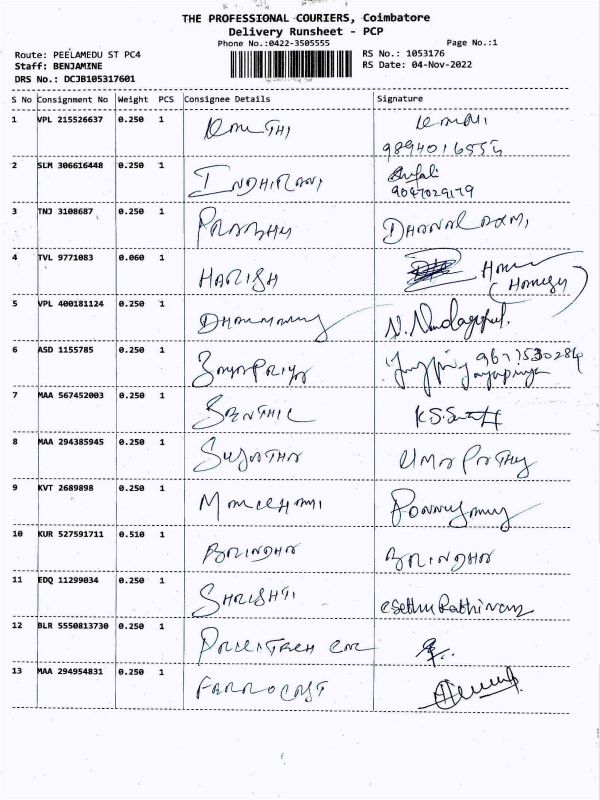 THE PROFESSIONAL COURIERS, Coimbatore
Delivery Runsheet - PCP
Phone No.:0422-3505555
Page No.:1
Route: PEELAMEDU ST PC4
RS No.: 1053176
Staff: BENJAMINE
RS Date: 04-Nov-2022
DRS No.: DCJB105317601
S No Consignment No Weight PCS Consignee Details Signature
1 VPL 215526637 0.250 1
2 SLM 306616448 0.250 1 INDHIRANI
9047029179
3 TNJ 3108687 0.250 1 PRABHU
4 TVL 9771083 0.060 1 HARISH
5 VPL 400181124 0.250 1
6 ASD 1155785 0.250 1 9677530284
7 MAA 567452003 0.250 1 SENTHIL
8 MAA 294385945 0.250 1 SUJATHA UMAPATHY
9 KVT 2689898 0.250 1
10 KUR 527591711 0.510 1 BRINDHA BRINDHA
11 EDQ 11299034 0.250 1 SHRISHTI
12 BLR 5550813730 0.250 1
13 MAA 294954831 0.250 1